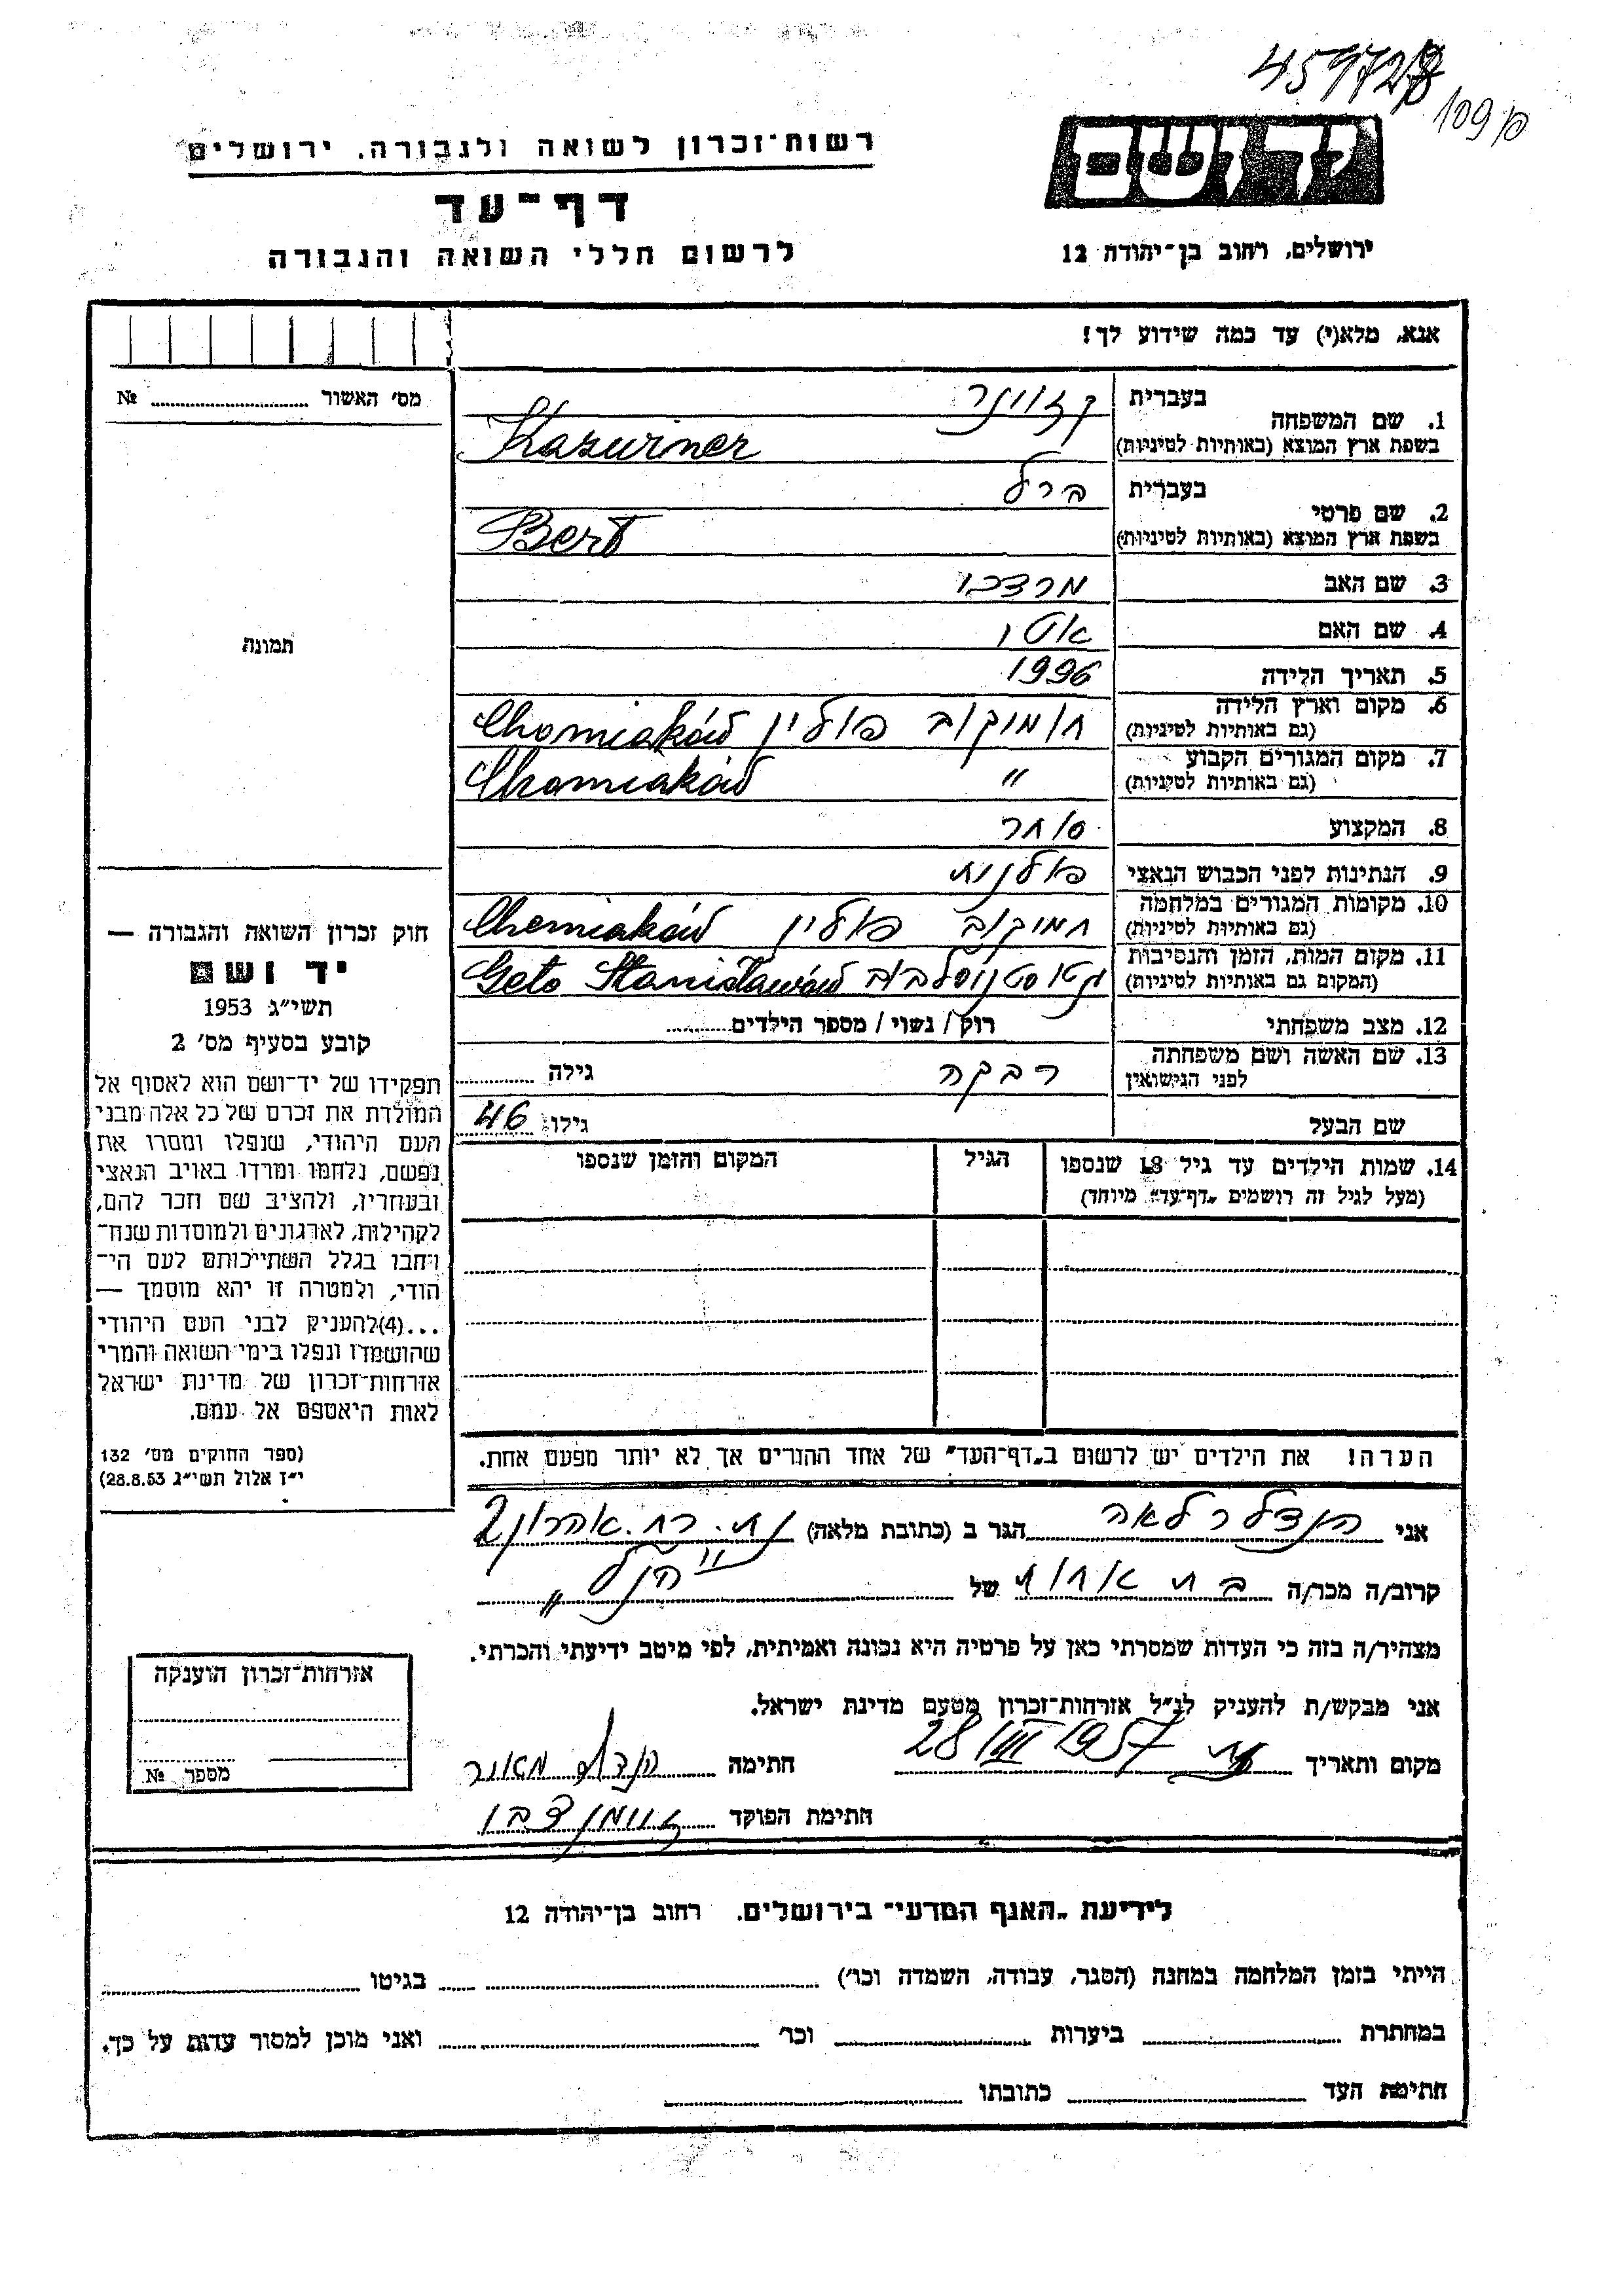 459728
109 פ
יד ושם
רשות־זכרון לשואה ולגבורה, ירושלים
דף־עד
לרשום חללי השואה והגבורה
ירושלים, רחוב בן־יהודה 12
אנא, מלא(י) עד כמה שידוע לך!
מס׳ האשור ........ №
תמונה
חוק זכרון השואה והגבורה —
יד ושם
תשי״ג 1953
קובע בסעיף מס׳ 2
תפקידו של יד־ושם הוא לאסוף אל
המולדת את זכרם של כל אלה מבני
העם היהודי, שנפלו ומסרו את
נפשם, נלחמו ומרדו באויב הנאצי
ובעוזריו, ולהציב שם וזכר להם,
לקהילות, לארגונים ולמוסדות שנח־
רבו בגלל השתייכותם לעם הי־
הודי, ולמטרה זו יהא מוסמך —
...(4)להעניק לבני העם היהודי
שהושמדו ונפלו בימי השואה והמרי
אזרחות־זכרון של מדינת ישראל
לאות היאספם אל עמם.
(ספר החוקים מס׳ 132
י״ז אלול תשי״ג 28.8.53)
1. שם המשפחה בעברית קזווינר
בשפת ארץ המוצא (באותיות לטיניות) Kazwiner
2. שם פרטי בעברית ברל
בשפת ארץ המוצא (באותיות לטיניות) Berl
3. שם האב מרדכי
4. שם האם
5. תאריך הלידה 1896
6. מקום וארץ הלידה (גם באותיות לטיניות) חומיקוב פולין Chomiaków
7. מקום המגורים הקבוע (גם באותיות לטיניות) ״ Chomiaków
8. המקצוע סוחר
9. הנתינות לפני הכבוש הנאצי פולנית
10. מקומות המגורים במלחמה (גם באותיות לטיניות) חמיקוב פולין Chomiaków
11. מקום המות, הזמן והנסיבות (המקום גם באותיות לטיניות) גטו סטניסלבוב Geto Stanisławów
12. מצב משפחתי רוק / נשוי / מספר הילדים........
13. שם האשה ושם משפחתה לפני הנישואין רבקה גילה ........
שם הבעל גילו: 46
14. שמות הילדים עד גיל 18 שנספו (מעל לגיל זה רושמים „דף־עד״ מיוחד) הגיל המקום והזמן שנספו
הערה! את הילדים יש לרשום ב„דף־העד״ של אחד ההורים אך לא יותר מפעם אחת.
אני הנדלר לאה הגר ב (כתובת מלאה) נת. רח. אהרון 2
קרוב/ה מכר/ה בת אחות של ״הנ״ל״
מצהיר/ה בזה כי העדות שמסרתי כאן על פרטיה היא נכונה ואמיתית, לפי מיטב ידיעתי והכרתי.
אני מבקש/ת להעניק לנ״ל אזרחות־זכרון מטעם מדינת ישראל.
מקום ותאריך נת 28/VII 1957 חתימה
חתימת הפוקד
אזרחות־זכרון הוענקה
מספר №
לידיעת „האגף המדעי״ בירושלים. רחוב בן־יהודה 12
הייתי בזמן המלחמה במחנה (הסגר, עבודה, השמדה וכו׳) ........ בגיטו ........
במחתרת ........ ביערות ........ וכו׳ ........ ואני מוכן למסור עדות על כך.
חתימת העד ........ כתובתו ........